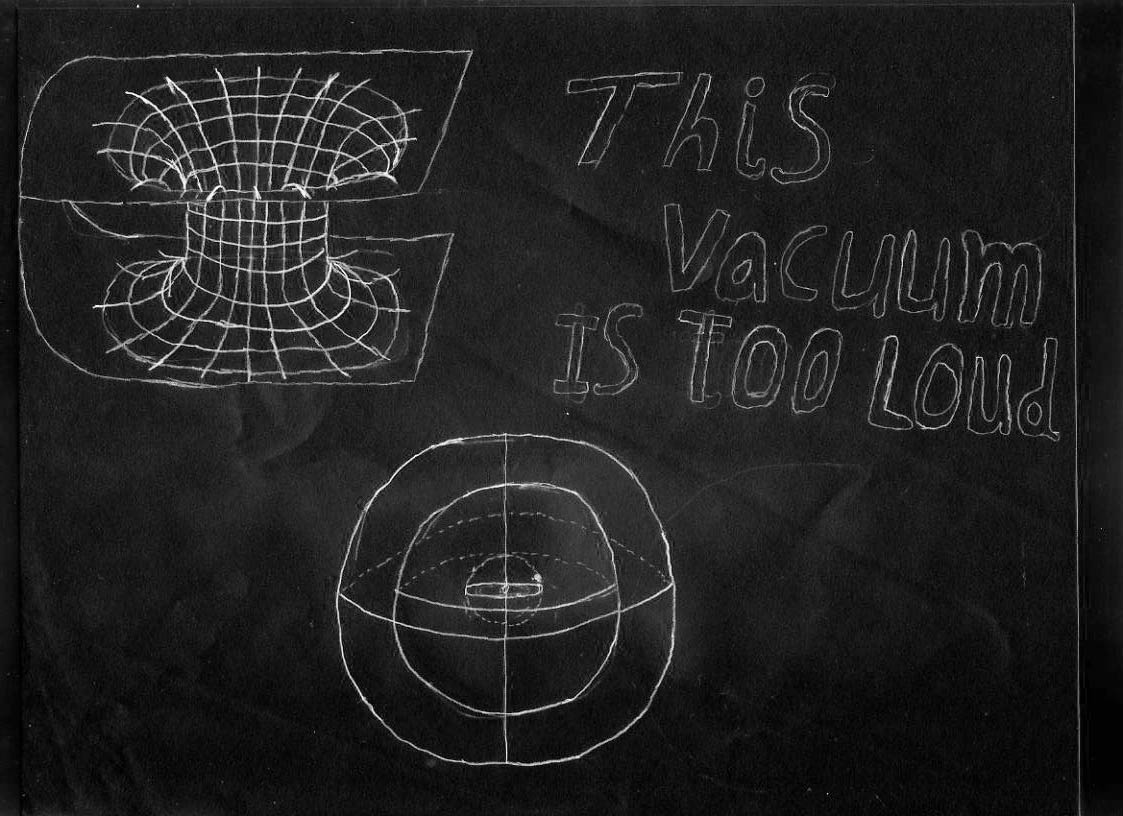 ThiS
Vacuum
IS TOO LOUd